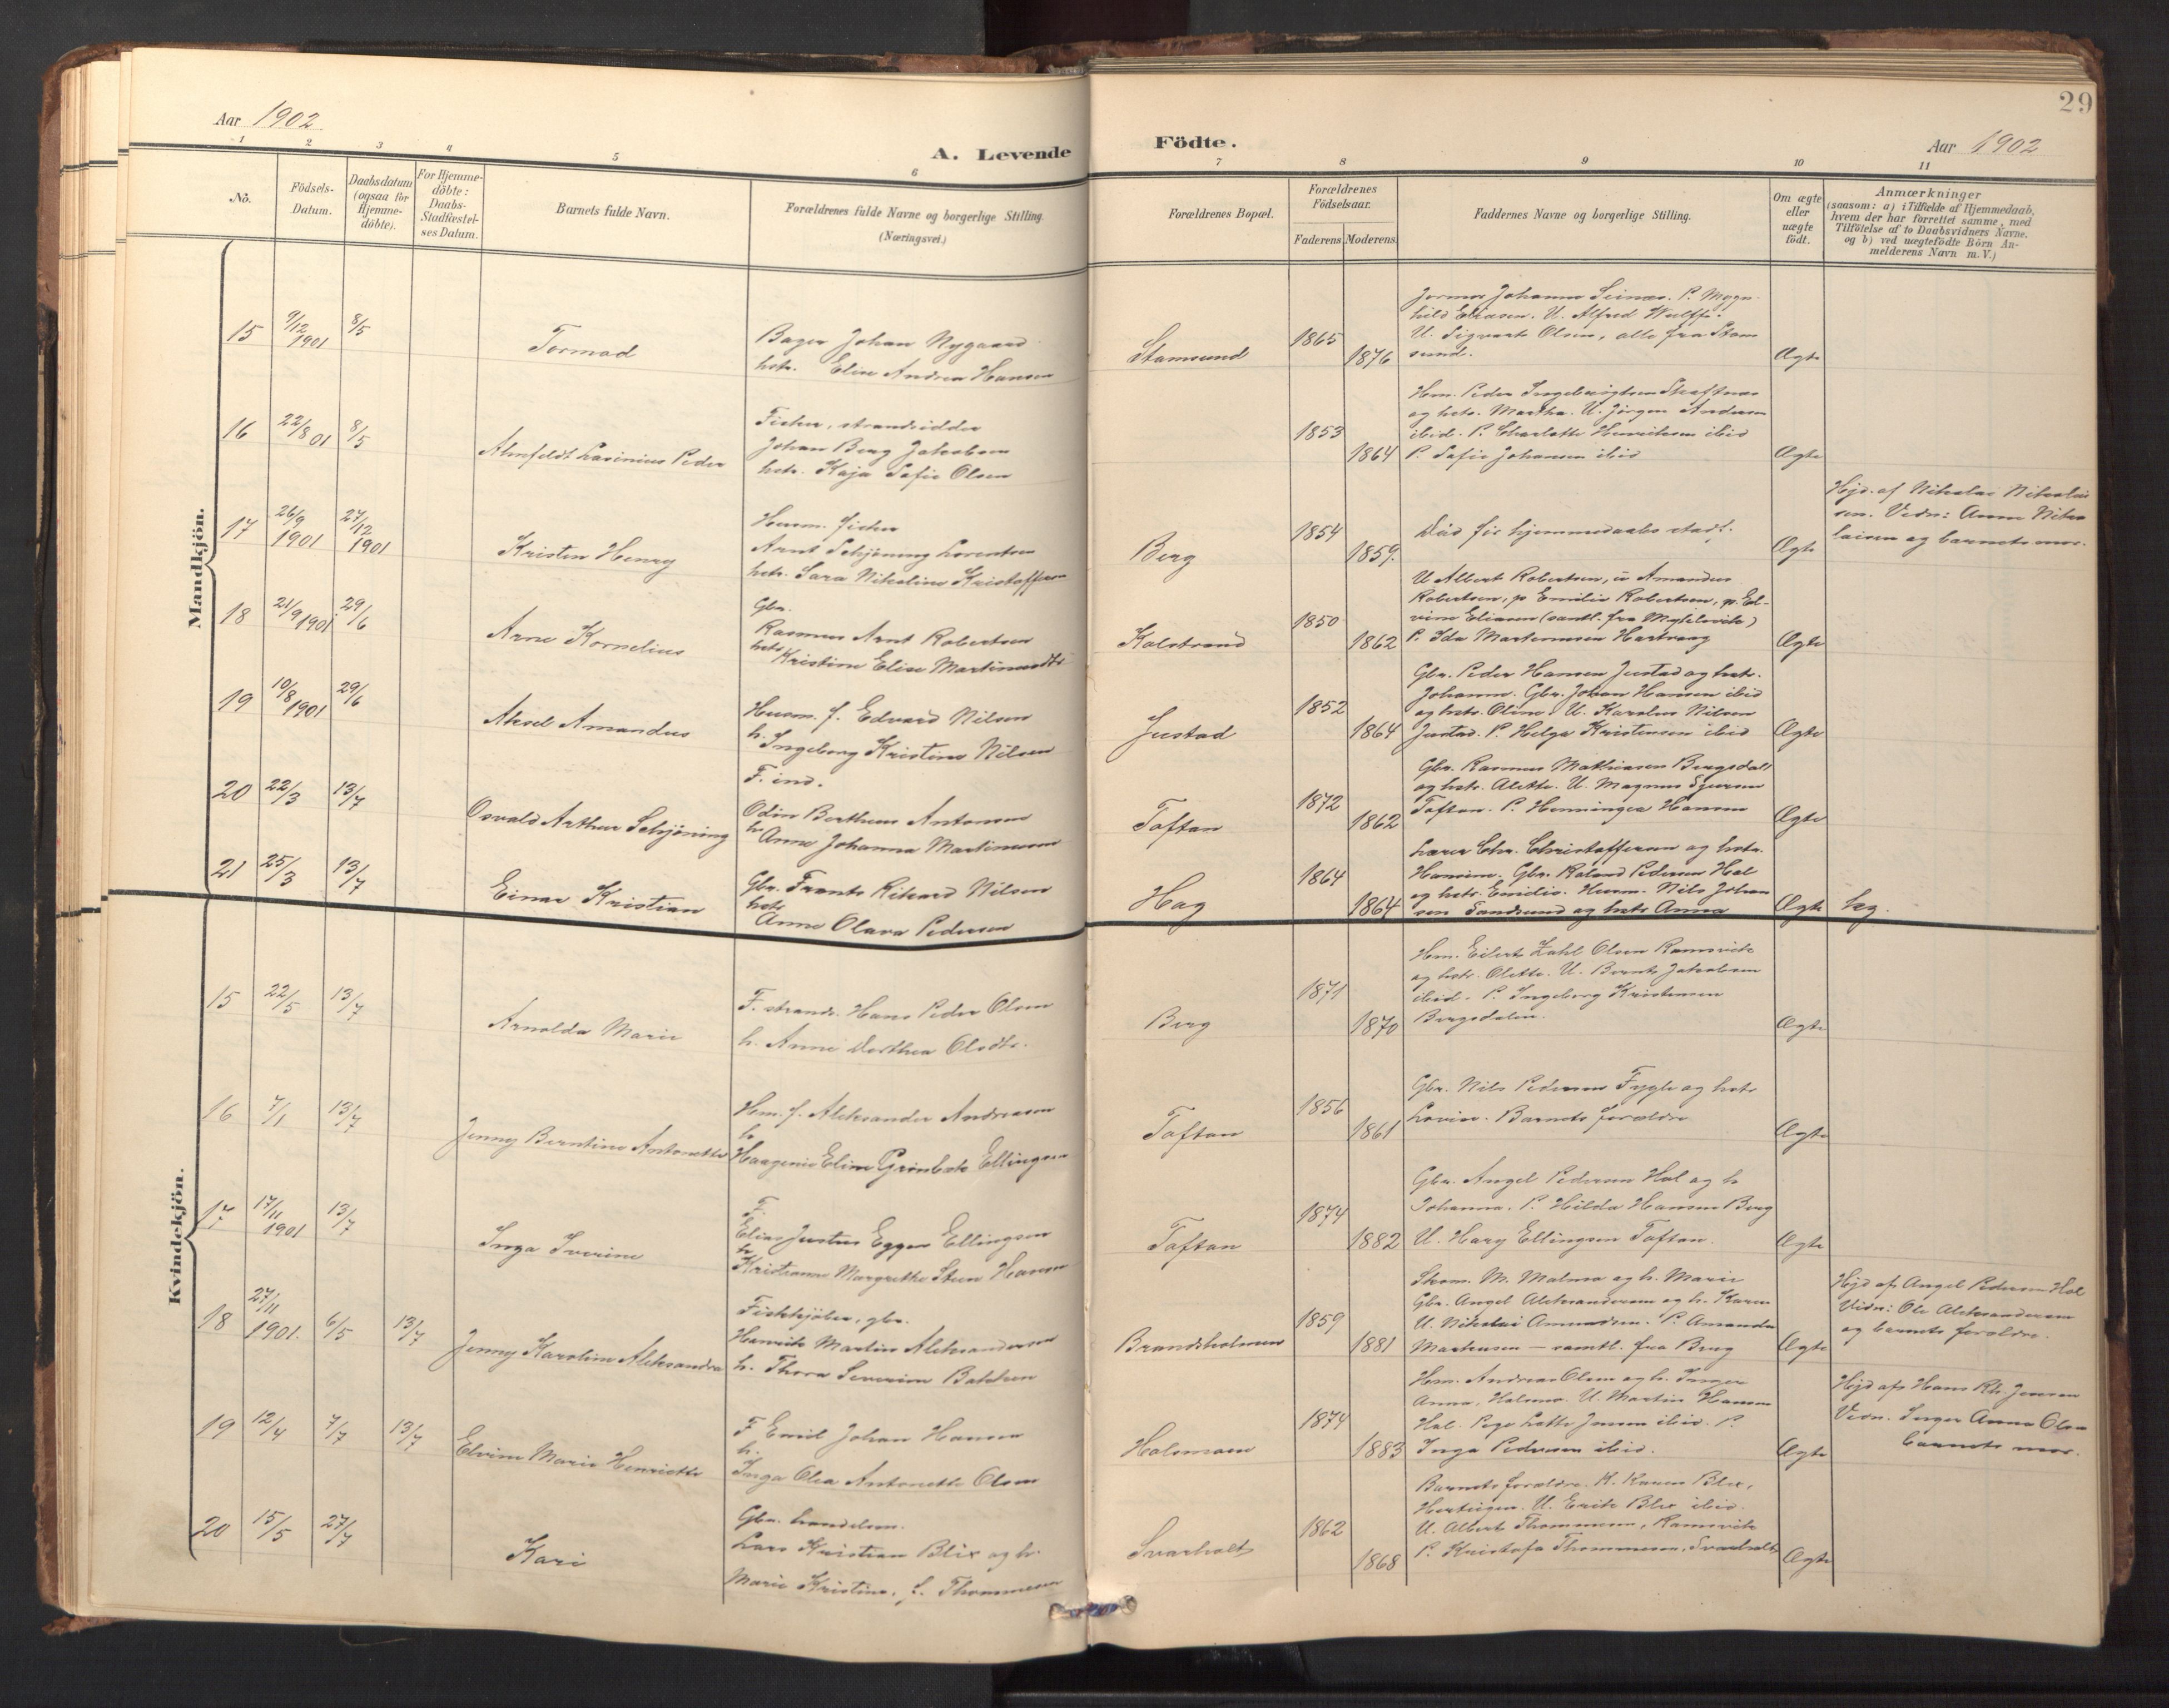 Aar 1902
A. Levende
1 2 3 4 5 6
No.
Födsels-
Datum.
Daabsdatum
(ogsaa for
Hjemme-
döbte).
For Hjemme-
döbte:
Daabs-
Stadfæstel-
ses Datum.
Barnets fulde Navn.
Forældrenes fulde Navne og borgerlige Stilling.
(Næringsvei.)
Mandkjön.
15 9/12 1901 8/5
Tormod
Bager Johan Nygaard
hstr. Elise Andrea Hansen
16 22/8 01 8/5
Almfeldt Lavinius Peder
Fisker, strandsidder
Johan Berg Jakobsen
hstr. Kaja Sofie Olsen
17 26/9 1901 27/12 1901
Kristen Henry
Husm. fisker
Arnt Schjöning Lorentsen
hstr. Sara Nikoline Kristoffersen
18 21/9 1901 29/6
Arne Kornelius
Gbr.
Rasmus Arnt Robertsen
hstr. Kristine Elise Martinusdtr
19 10/8 1901 29/6
Aksel Amandus
Husm. f. Edvard Nilsen
h. Ingeborg Kristine Nilsen
20 22/3 13/7
Osvald Arthur Schjöning
F. ind.
Odin Bertheus Antonsen
h. Anne Johanna Martinussen
21 25/3 13/7
Einar Kristian
Gbr. Frants Rikard Nilsen
hstr.
Anne Olava Pedersen
Kvindekjön.
15 22/5 13/7
Arnolda Marie
F. strands. Hans Peder Olsen
h. Anne Dorthea Olsdtr.
16 7/1 13/7
Jenny Berntine Antonette
Hm. f. Aleksander Andreasen
h.
Haagenie Eline Grönbek Ellingsen
17 17/11 1901 13/7
Inga Iverine
F.
Elias Justus Eggen Ellingsen
h.
Kristianne Margrethe Steen Hansen
18 27/11 1901. 6/5 13/7
Jenny Karoline Aleksandra
Fiskekjöber, gbr.
Henrik Martin Aleksandersen
h. Thora Severine Bakken
19 12/4 7/7 13/7
Elvine Marie Henriette
F. Emil Johan Hansen
h.
Inga Olea Antonette Olsen
20 15/5 27/7
Kari
Gbr. handelsm.
Lars Kristian Blix og h.
Marie Kristine, f. Thommesen
29
Födte.
Aar 1902
7 8 9 10 11
Forældrenes Bopæl.
Forældrenes
Födselsaar.
Faderens. Moderens.
Faddernes Navne og borgerlige Stilling.
Om ægte
eller
uægte
födt.
Anmærkninger
(saasom: a) i Tilfælde af Hjemmedaab,
hvem der har forrettet samme, med
Tilföielse af to Daabsvidners Navne.
og b) ved uægtefödte Börn An-
melderens Navn m. V.)
Stamsund 1865 1876
Jormor Johanna P.
hild Eliasen. U. Alfred Wulff.
U. Sigvart Olsen, alle fra Stam
sund.
Ægte
1853 1864
Hm. Peder Ingebrigtsen
og hstr. Martha. U. Jörgen Andersen
ibid. P. Charlotte Henriksen ibid
P. Sofie Johansen ibid
Ægte
Berg 1854 1859.
Död før hjemmedaabs stadf.
Ægte
Hjd. af Nikolai Nikolai
sen. Vidn: Anne Niko
laisen og barnets mor.
Kalstrand 1850 1862
U Albert Robertsen, u Amandus
Robertsen, p Emilie Robertsen, p. El-
vine Eliasen (samtl. fra )
P. Ida Martinussen Hartvaag
Ægte
Justad 1852 1864
Gbr. Peder Hansen Justad og hstr.
Johanna. Gbr. Johan Hansen ibid
og hstr. Oline. U. Karolus Nilsen
Justad. P. Helga Kristensen ibid
Ægte
Toftan 1872 1862
Gbr. Rasmus Mathiasen Bergsdal
og hstr. Alette. U. Magnus
Toftan. P. Henningea Hansen
Ægte
Hag 1864 1864
Lærer Chr. Christoffersen og hstr.
Hansine. Gbr. Roland Pedersen Hol
og hstr. Emilie. Husm. Nils Johan
sen Sandsund og hstr Anna
Ægte
Berg 1871 1870
Hm. Eilert Zahl Olsen Ramsvik
og hstr. Olette. U. Bernt Jakobsen
ibid. P. Ingeborg Kristensen
Bergsdalen.
Ægte
Toftan 1856 1861
Gbr. Nils Pedersen Fygle og hstr
Lovise. Barnets forældre
Ægte
Toftan 1874 1882
Gbr. Angel Pedersen Hol og h
Johanna. P. Hilda Hansen Berg
U. Hary Ellingsen Toftan.
Ægte
Brandsholmen 1859 1881
Skom. M. Malmo og h. Marie
Gbr. Angel Aleksandersen og h. Karen
U. Nikolai Amundsen. P. Amanda
Markusen – samtl. fra Berg
Ægte
Hjd af Angel Pedersen Hol
Vidn: Ole Aleksandersen
og barnets forældre.
Holsmoen 1874 1883
Hm. Andreas Olsen og h. Inger
Anna, Holsmo. U. Martin Hansen
Hol. Pige Lotte Jensen ibid. P.
Inga Pedersen ibid.
Ægte
Hjd af Hans Kr. Jensen
Vidn. Inger Anna Olsen
barnets mor.
Svarholt 1862 1868
Barnets forældre. K. Karen Blix,
Hertugen. U. Erik Blix ibid.
U. Albert Thommesen, Ramsvik
P. Kristofa Thommesen, Svarholt
Ægte